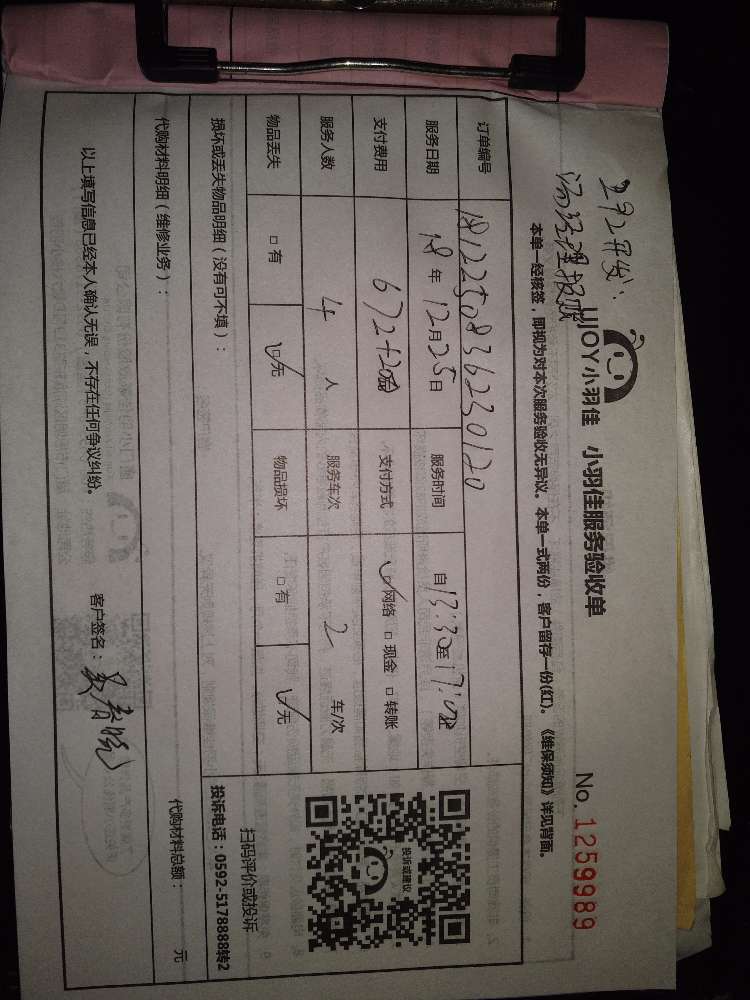 汤经理报账
UJOY小羽佳 小羽佳服务验收单 No. 1259989
本单一经核签，即视为对本次服务验收无异议。本单一式两份，客户留存一份(红)。《维保须知》详见背面。
订单编号 1812250836230120
服务日期 18 年 12 月 25 日 服务时间 自 13:30 至 17:00 止
支付费用 支付方式 ☑网络 □现金 □转账
服务人数 4 人 服务车次 2 车/次
物品丢失 □有 ☑无 物品损坏 □有 ☑无
投诉或建议
扫码评价或投诉
投诉电话：0592-5178888转2
损坏或丢失物品明细（没有可不填）：
代购材料明细（维修业务）： 代购材料总额： 元
以上填写信息已经本人确认无误，不存在任何争议纠纷。 客户签名：